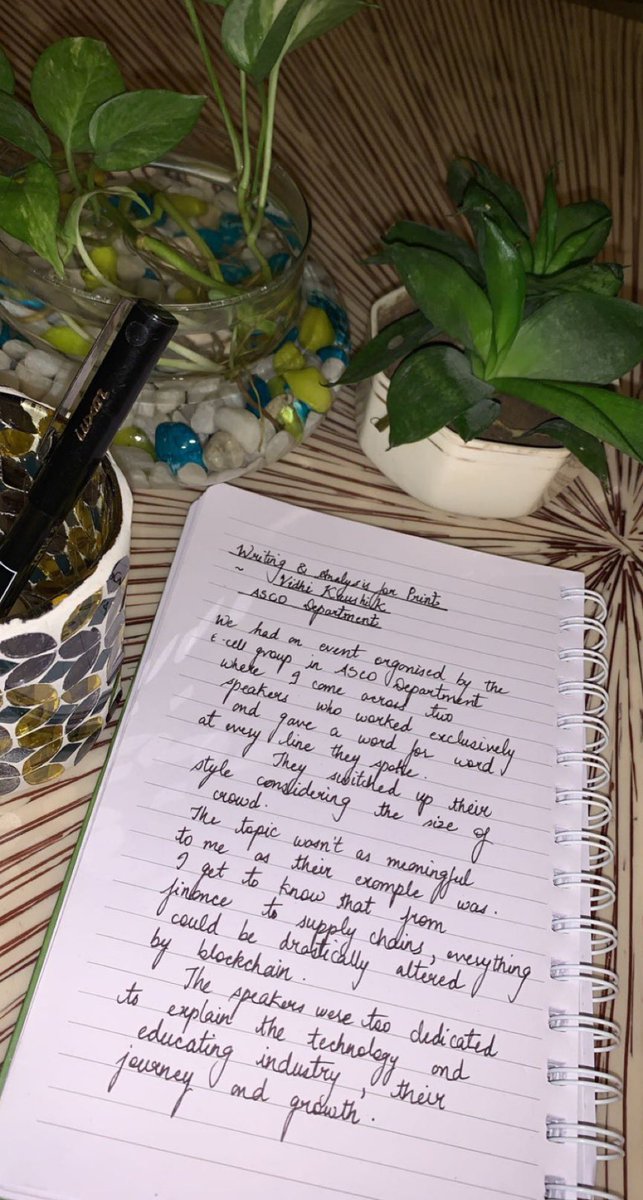 Writing & Analysis for Print
~ Vidhi Kaushik
ASCO Department
We had an event organised by the
E-cell group in ASCO Department
where I come across two
speakers who worked exclusively
and gave a word for word
at every line they spoke.
They switched up their
style considering the size of
crowd.
The topic wasn't as meaningful
to me as their example was.
I get to know that from
finance to supply chains, everything
could be drastically altered
by blockchain.
The speakers were too dedicated
to explain the technology and
educating industry, their
journey and growth.